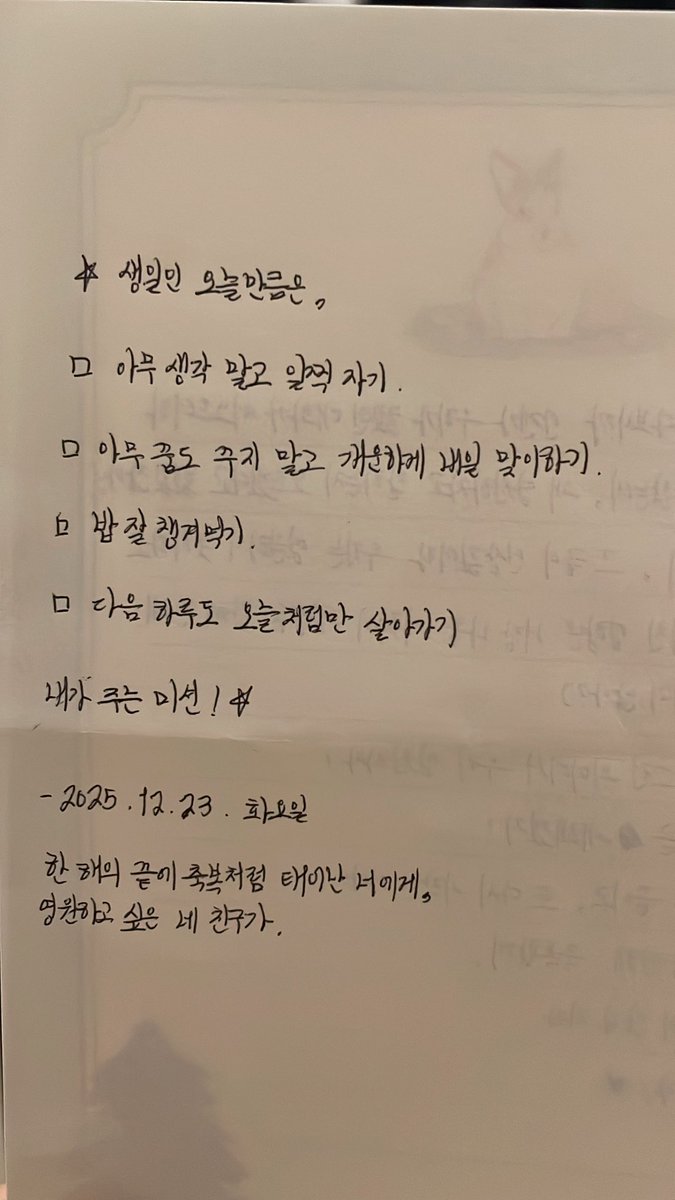 ☆ 생일인 오늘만큼은,
□ 아무 생각 말고 일찍 자기.
□ 아무 꿈도 꾸지 말고 개운하게 내일 맞이하기.
□ 밥 잘 챙겨먹기.
□ 다음 하루도 오늘처럼만 살아가기
내가 주는 미션! ☆
- 2025. 12. 23. 화요일
한 해의 끝에 축복처럼 태어난 너에게,
영원하고 싶은 네 친구가.